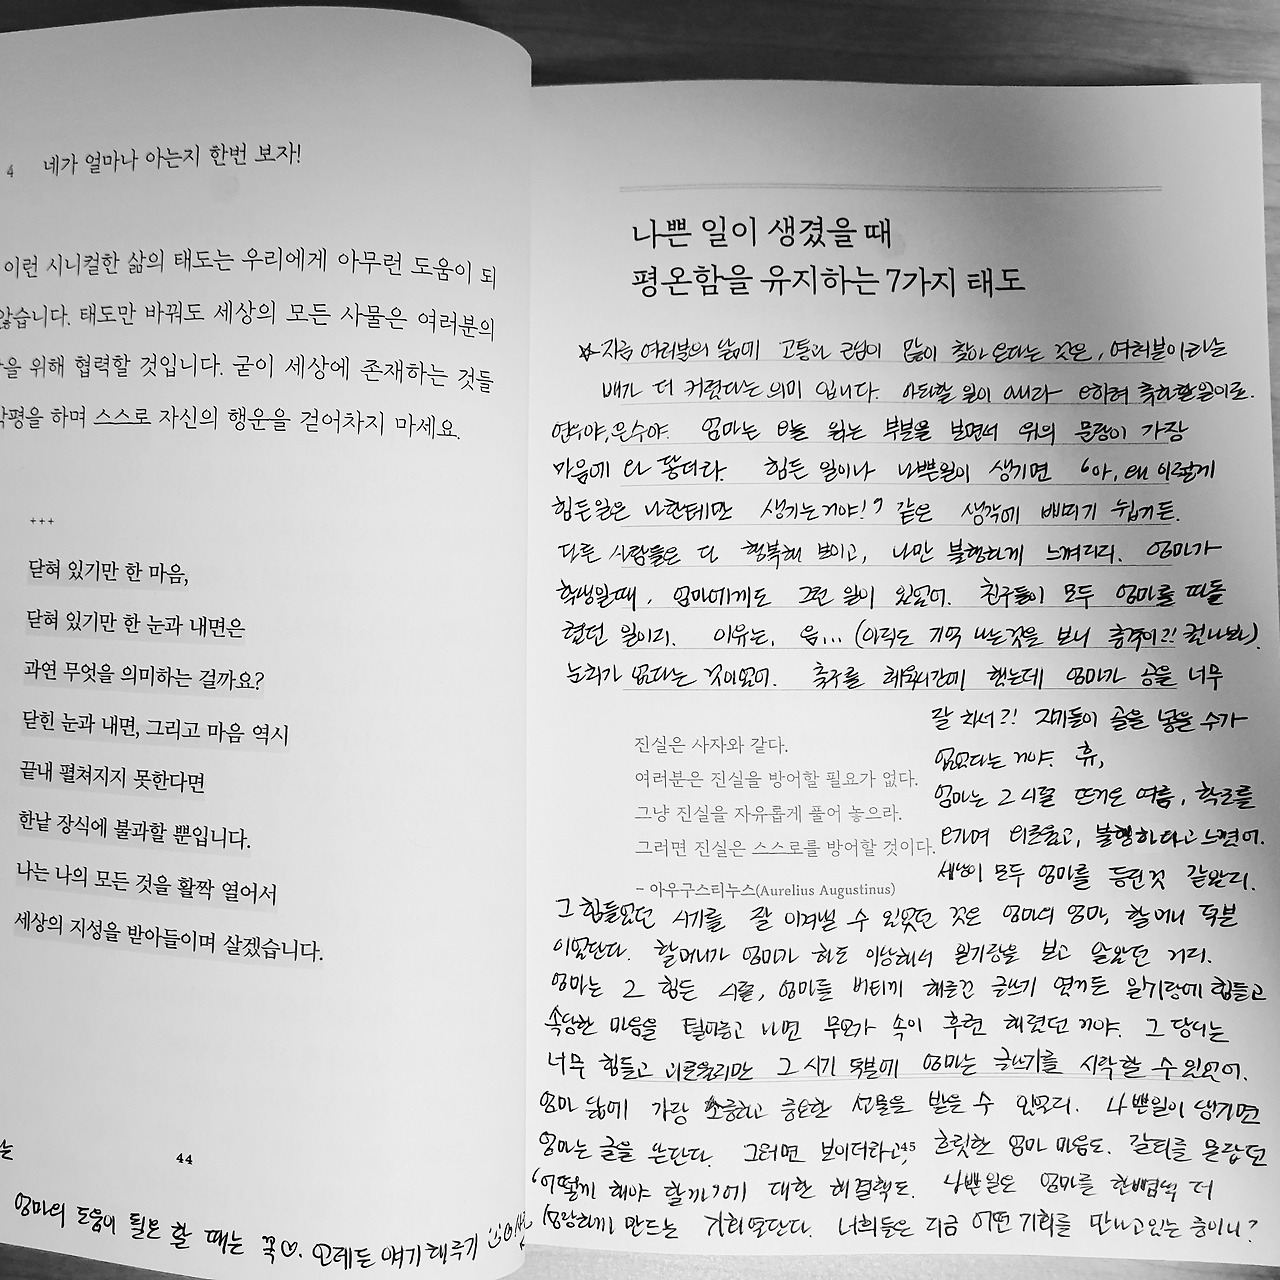 4 네가 얼마나 아는지 한번 보자!
이런 시니컬한 삶의 태도는 우리에게 아무런 도움이 되
않습니다. 태도만 바꿔도 세상의 모든 사물은 여러분의
을 위해 협력할 것입니다. 굳이 세상에 존재하는 것들
평을 하며 스스로 자신의 행운을 걷어차지 마세요.
+++
닫혀 있기만 한 마음,
닫혀 있기만 한 눈과 내면은
과연 무엇을 의미하는 걸까요?
닫힌 눈과 내면, 그리고 마음 역시
끝내 펼쳐지지 못한다면
한낱 장식에 불과할 뿐입니다.
나는 나의 모든 것을 활짝 열어서
세상의 지성을 받아들이며 살겠습니다.
는
44
엄마의 도움이 필요 할 때는 꼭♡. 언제든 얘기해주기
나쁜 일이 생겼을 때
평온함을 유지하는 7가지 태도
☆지금 여러분의 삶에 고통과 고난이 많이 찾아 온다는 것은, 여러분이라는
배가 더 커졌다는 의미 입니다. 아파할 일이 아니라 오히려 축하할일이죠.
연우야,은수야. 엄마는 오늘 읽는 부분을 보면서 위의 문장이 가장
마음에 와 닿더라. 힘든 일이나 나쁜일이 생기면 '아, 왜 이렇게
힘든일은 나한테만 생기는거야!' 같은 생각에 빠지기 쉽거든.
다른 사람들은 다 행복해 보이고, 나만 불행하게 느껴지지. 엄마가
학생일때, 엄마에게도 그런 일이 있었어. 친구들이 모두 엄마를 따돌
렸던 일이지. 이유는, 음... (아직도 기억 나는것을 보니 충격이?! 컸나봐).
눈치가 없다는 것이었어. 축구를 체육시간에 했는데 엄마가 공을 너무
잘 차서?! 자기들이 골을 넣을 수가
없었다는 거야. 휴,
엄마는 그 시절 뜨거운 여름, 학교를
오가며 외로웠고, 불행하다고 느꼈어.
세상이 모두 엄마를 등진것 같았지.
진실은 사자와 같다.
여러분은 진실을 방어할 필요가 없다.
그냥 진실을 자유롭게 풀어 놓으라.
그러면 진실은 스스로를 방어할 것이다.
– 아우구스티누스(Aurelius Augustinus)
그 힘들었던 시기를 잘 이겨낼 수 있었던 것은 엄마의 엄마, 할머니 덕분
이었단다. 할머니가 엄마가 하도 이상해서 일기장을 보고 알았던 거지.
엄마는 그 힘든 시절, 엄마를 버티게 해준건 글쓰기 였거든 일기장에 힘들고
속상한 마음을 털어놓고 나면 무언가 속이 후련 해졌던 거야. 그 당시는
너무 힘들고 괴로웠지만 그 시기 덕분에 엄마는 글쓰기를 시작할 수 있었어.
엄마 삶에 가장 소중하고 중요한 선물을 받을 수 있었지. 나쁜일이 생기면
엄마는 글을 쓴단다. 그러면 보이더라고, 흐릿한 엄마 마음도. 갈피를 못잡던
45
'어떻게 해야 할까?'에 대한 해결책도. 나쁜일은 엄마를 한뼘씩 더
성장하게 만드는 기회였단다. 너희들은 지금 어떤 기회를 만나고있는 중이니?